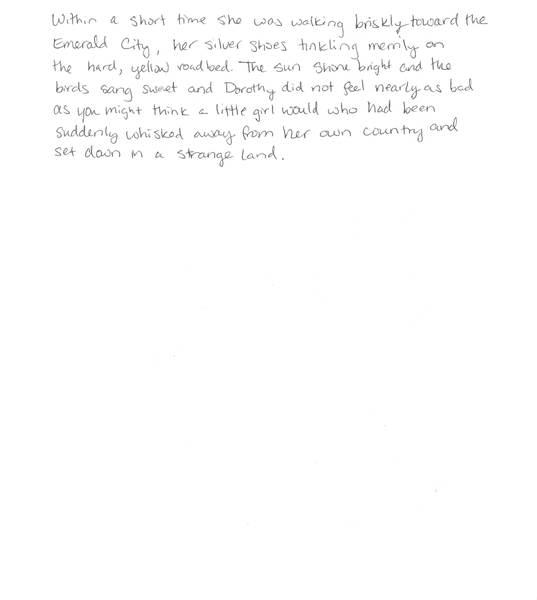 Within a short time she was walking briskly toward the
Emerald City, her silver shoes tinkling merrily on
the hard, yellow roadbed. The sun shone bright and the
birds sang sweet and Dorothy did not feel nearly as bad
as you might think a little girl would who had been
suddenly whisked away from her own country and
set down in a strange land.